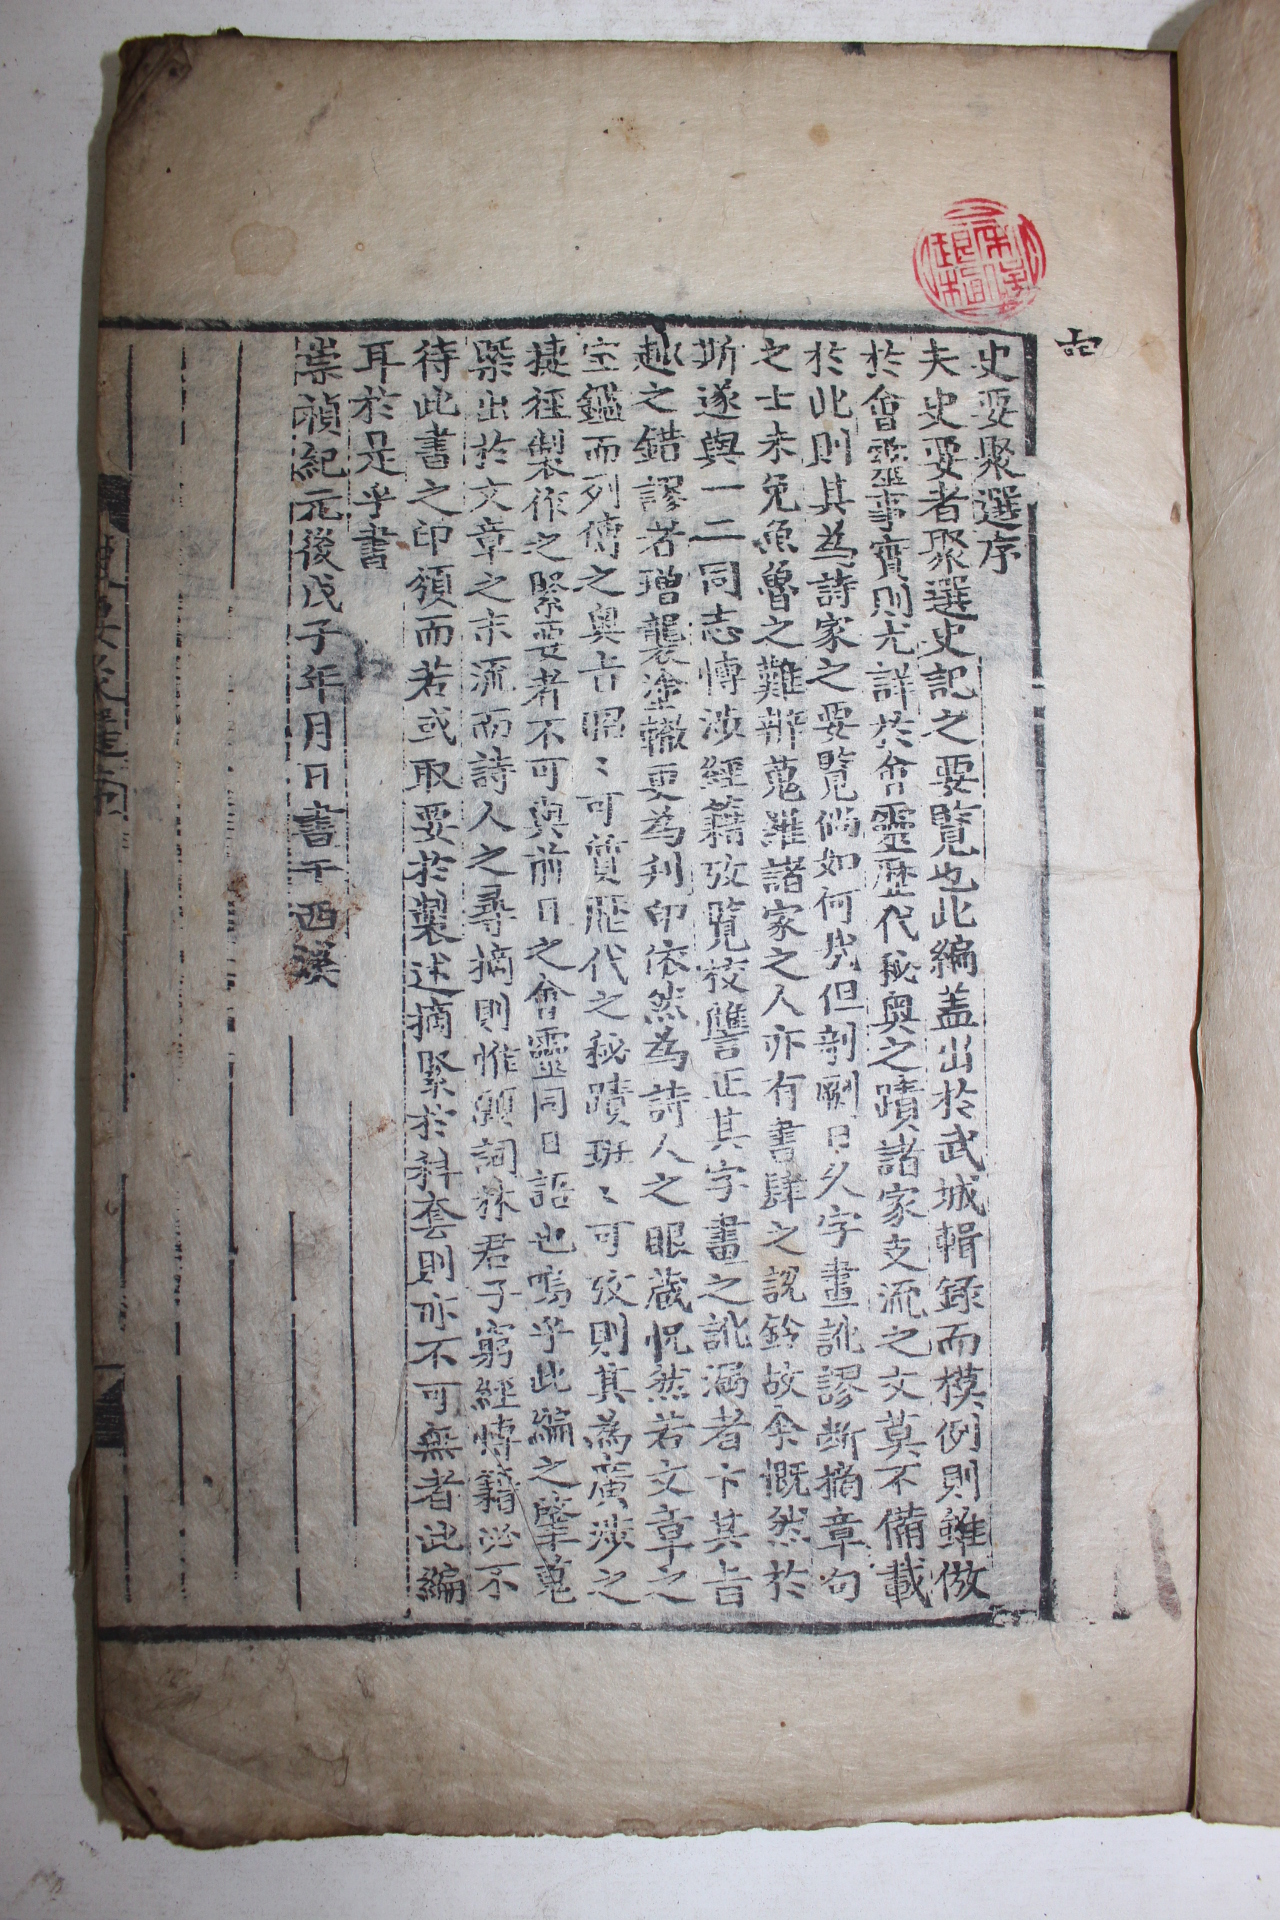 史要聚選序
夫史要者聚選史記之要覽也此編盖出於武城輯録而模例則雖倣
於會灵事實則尤詳於會靈歷代秘奧之蹟諸家支流之文莫不備載
於此則其為詩家之要覽倘如何㢤但剞劂日久字畫訛謬断摘章句
之士未免魚魯之難辨蒐羅諸家之人亦有書肆之説鈴故余慨然於
斯遂與一二同志愽涉經籍攷覧校讐正其字畫之訛漏者卞其旨
趣之錯謬者增襲塗轍更為刋印依然為詩人之眼蔵怳然若文章之
宝鑑而列傳之奥旨昭〻可質歷代之秘蹟班〻可攷則其為廣涉之
捷徑製作之緊要者不可與前日之會靈同日語也嗚乎此編之肇蒐
槩出於文章之末流而詩人之尋摘則惟願詞林君子窮經愽籍必不
待此書之印頒而若或取要於製述摘緊於科套則亦不可無者此編
耳於是乎書
崇禎紀元後戊子年月日書于西溪